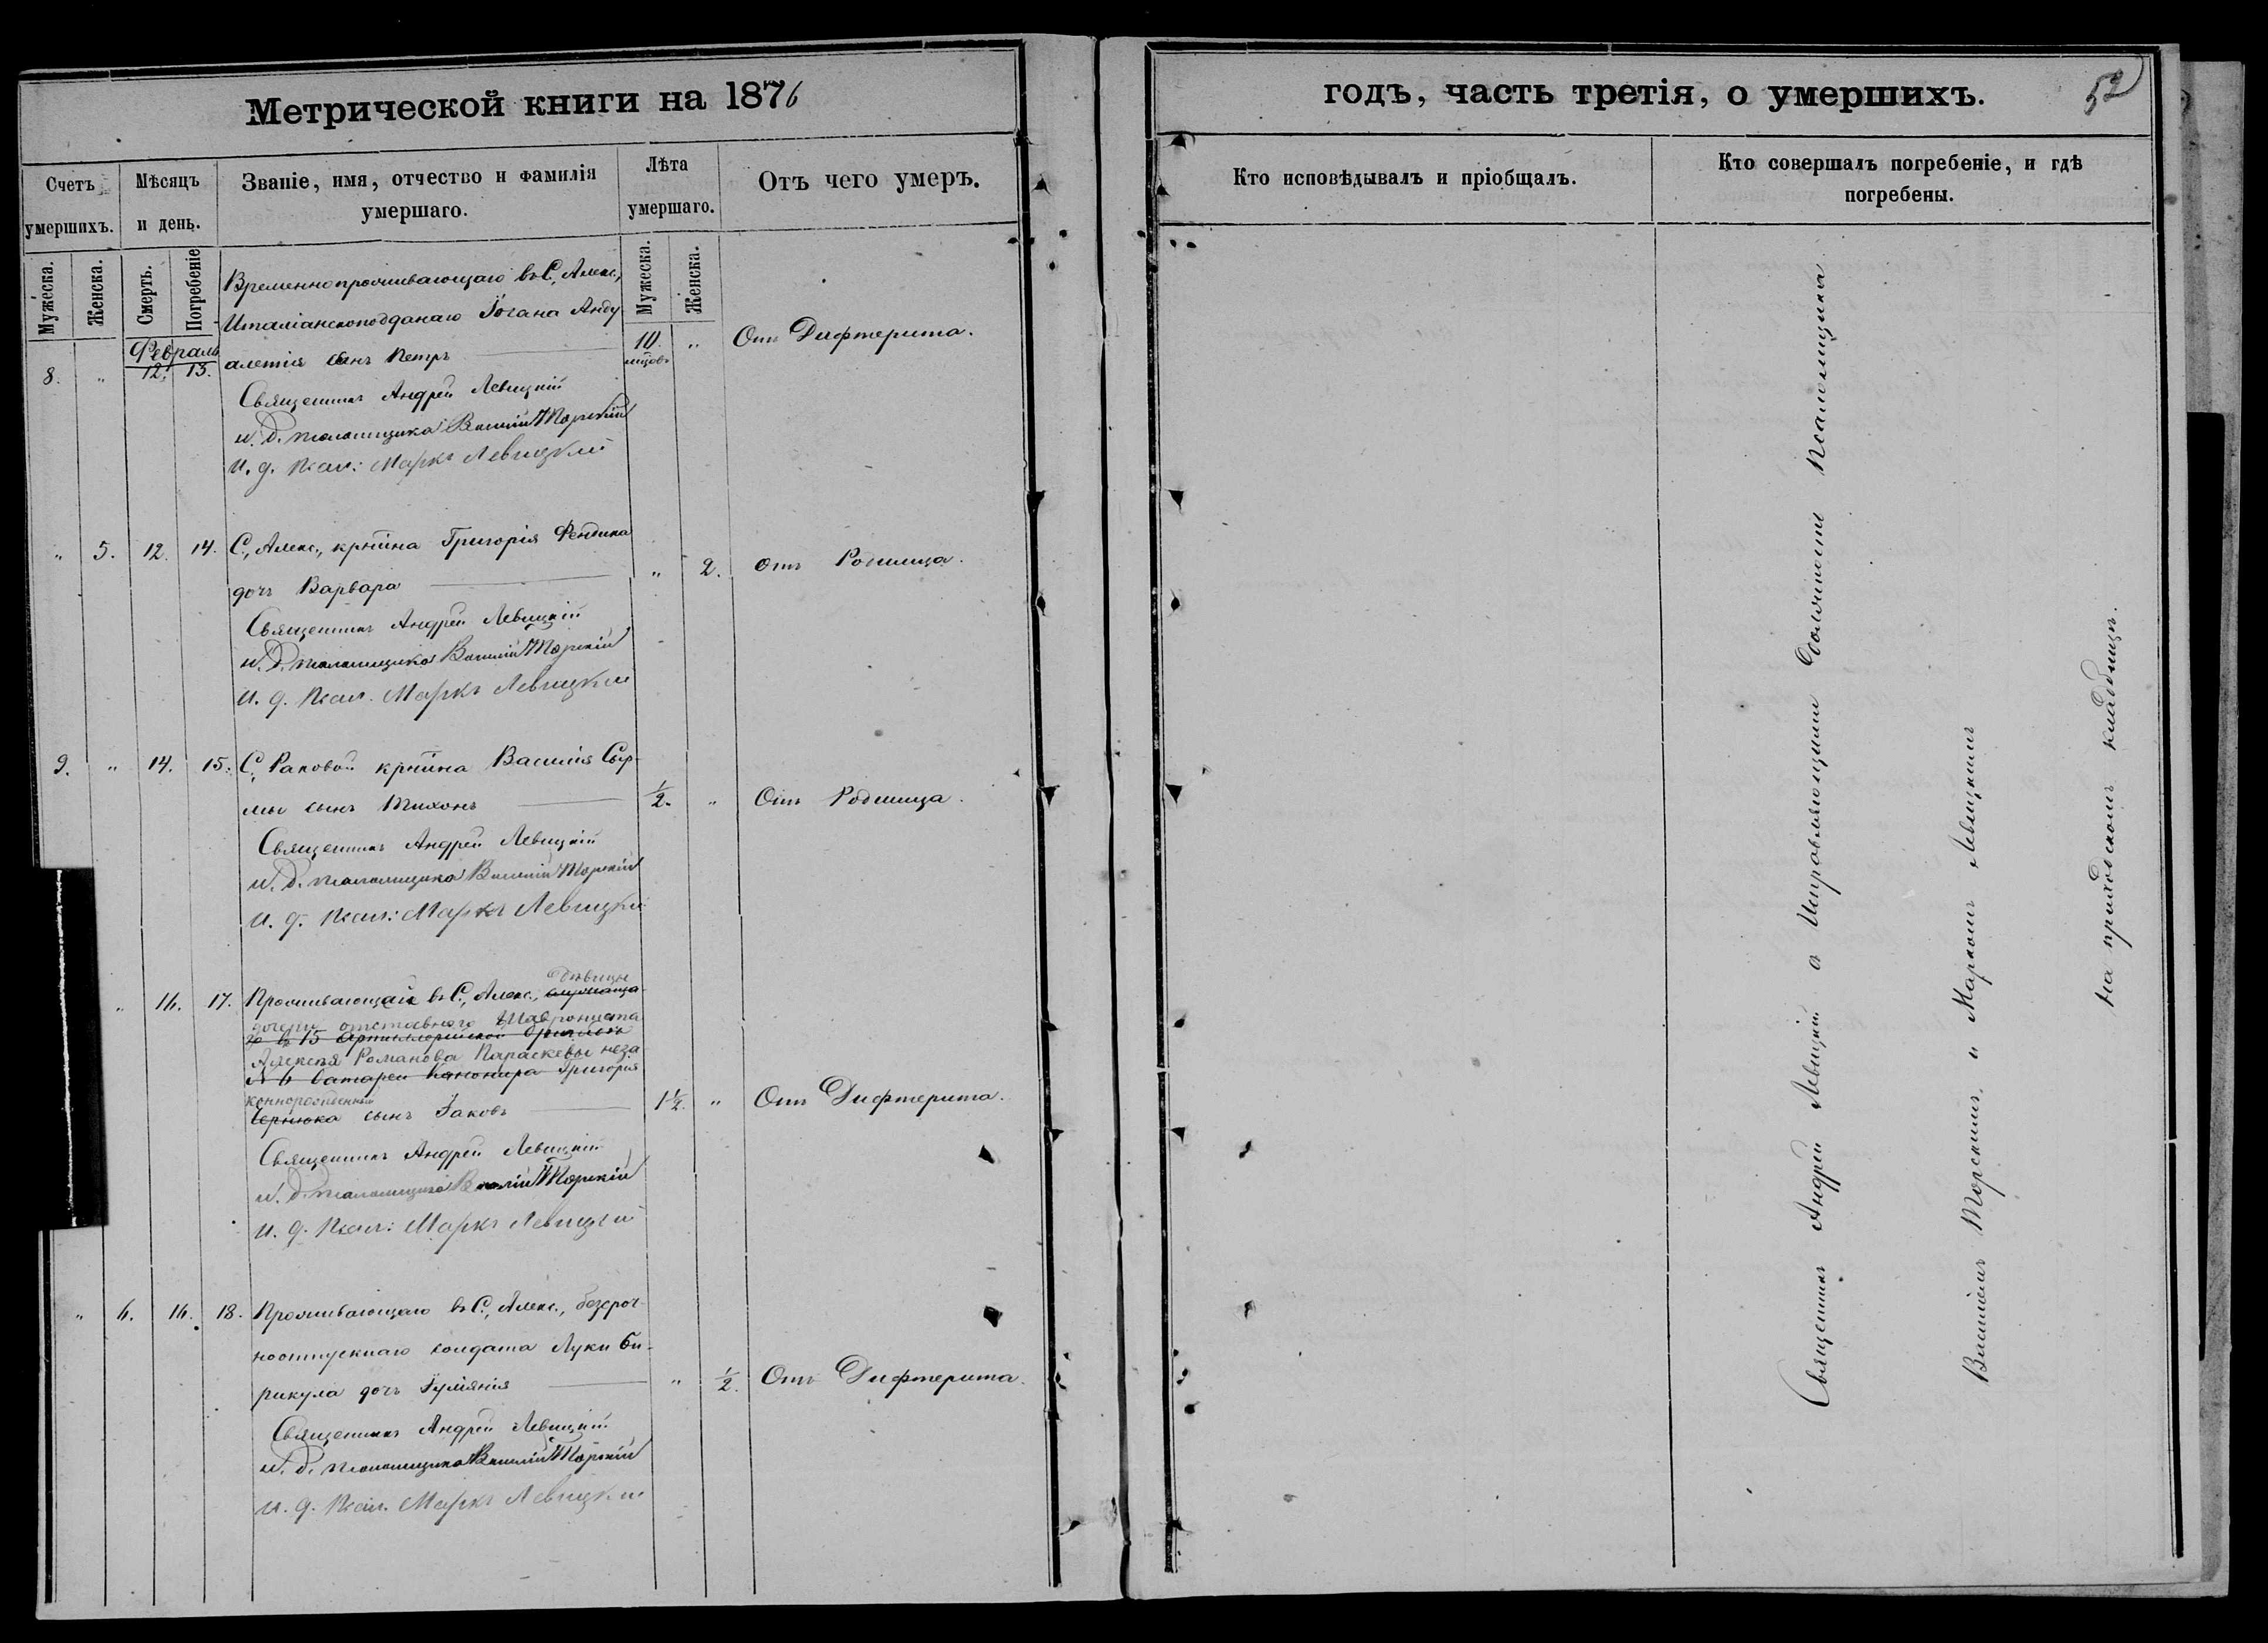 Метрической книги на 1876
Счетъ умершихъ.
Мѣсяцъ и день.
Званіе, имя, отчество и фамилія умершаго.
Лѣта умершаго.
Отъ чего умеръ.
Мужеска.
Женска.
Смерть.
Погребеніе
Мужеска.
Женска.
Временнопроживающаго въ С. Алекс.,
Италіанскоподданаго Іогана Анду
Февраль
8. " 12. 13. алетія сынъ Петръ 10. мцовъ " Отъ Дифтерита.
Священникъ Андрей Левицкій
и. д. псаломщика Василій Торскій
И. д. Псал: Маркъ Левицкій
" 5. 12. 14. С. Алекс., крнина Григорія Фендика
дочь Варвара " 2. отъ Родимца.
Священникъ Андрей Левицкій
и. д. псаломщика Василій Торскій
И. д. Псал. Маркъ Левицкій
9. " 14. 15. С. Раковой крнина Василія Сыр-
мы сынъ Тихонъ ½. " Отъ Родимца.
Священникъ Андрей Левицкій
и. д. псаломщика Василій Торскій
И. д. Псал: Маркъ Левицкій
дѣвицы
" 16. 17. Проживающай въ С. Алекс.,
дочери отставного
15 Артиллерійской бригады
Алексѣя Романова Параскевы неза
батареи Канонира Григорія
коннорожденный
Чернюка сынъ Іаковъ 1½. " Отъ Дифтерита.
Священникъ Андрей Левицкій
и. д. псаломщика Василій Торскій
И. д. Псал: Маркъ Левицкій
" 6. 16. 18. Проживающаго въ С. Алекс., безсроч-
ноотпускнаго солдата Луки Би-
рикула дочь Іуліянія " ½. Отъ Дифтерита.
Священникъ Андрей Левицкій
и. д. псаломщика Василій Торскій
И. д. Псал. Маркъ Левицкій
годъ, часть третія, о умершихъ.
52
Кто исповѣдывалъ и пріобщалъ.
Кто совершалъ погребеніе, и гдѣ погребены.
Священникъ Андрей Левицкій съ Исправляющими Должность Псаломщика
Василіемъ Торскимъ, и Маркомъ Левицкимъ
на приходскомъ кладбищѣ.